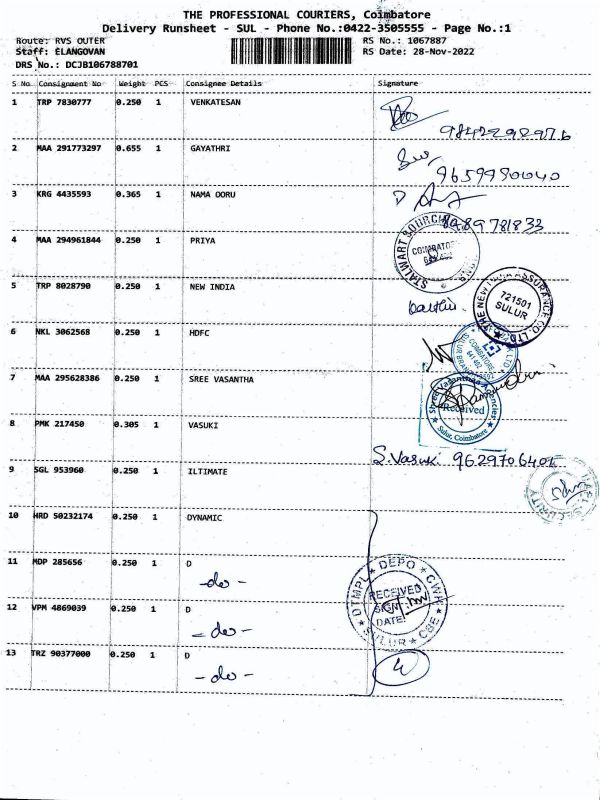 THE PROFESSIONAL COURIERS, Coimbatore
Delivery Runsheet - SUL - Phone No.:0422-3505555 - Page No.:1
Route: RVS OUTER RS No.: 1067887
Staff: ELANGOVAN RS Date: 28-Nov-2022
DRS No.: DCJB106788701
S No Consignment No Weight PCS Consignee Details Signature
1 TRP 7830777 0.250 1 VENKATESAN
2 MAA 291773297 0.655 1 GAYATHRI
9659980040
3 KRG 4435593 0.365 1 NAMA OORU
8489781833
4 MAA 294961844 0.250 1 PRIYA
STALWART SOURCING
COIMBATORE
5 TRP 8028790 0.250 1 NEW INDIA
THE NEW INDIA ASSURANCE CO. LTD.
721501
SULUR
6 NKL 3062568 0.250 1 HDFC
7 MAA 295628386 0.250 1 SREE VASANTHA
Shree Vasanthaa Agencies
Received
Sulur, Coimbatore
8 PMK 217450 0.305 1 VASUKI
S. Vasuki 9629706401
9 SGL 953960 0.250 1 ILTIMATE
SECURITY
10 HRD 50232174 0.250 1 DYNAMIC
11 MDP 285656 0.250 1 D
- do -
DTMPL DEPO CWH
RECEIVED
SIGN:
DATE:
SULUR CBE
12 VPM 4869039 0.250 1 D
- do -
13 TRZ 90377000 0.250 1 D
- do -
4